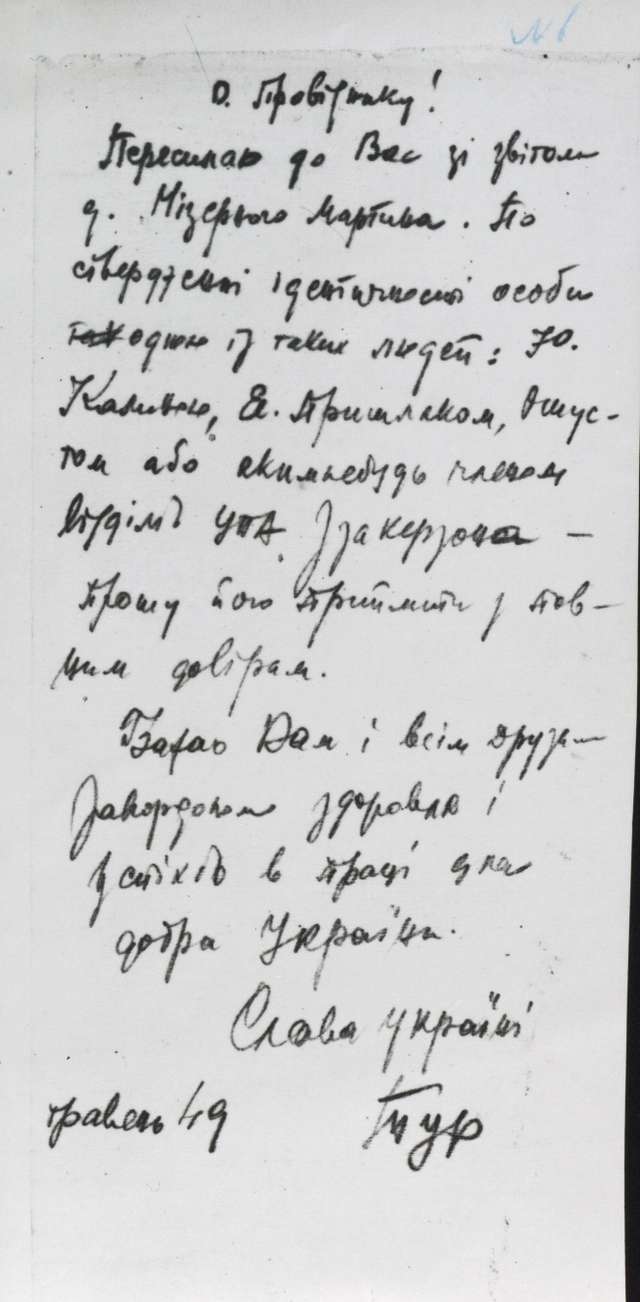 № 6
Д. Провіднику!
Пересилаю до Вас зі звітом
д. Мізерного Мартина. По
ствердженні ідентичности особи
одною із таких людей: Ю.
Калиною, Є. Пришляком, Шус-
том або якимнебудь членом
відділів УПА з закерзоня —
прошу його прийняти з пов-
ним довірям.
Бажаю Вам і всім друзям
закордоном здоровля і
успіхів в праці для
добра України.
Слава Україні
травень 49 Тур